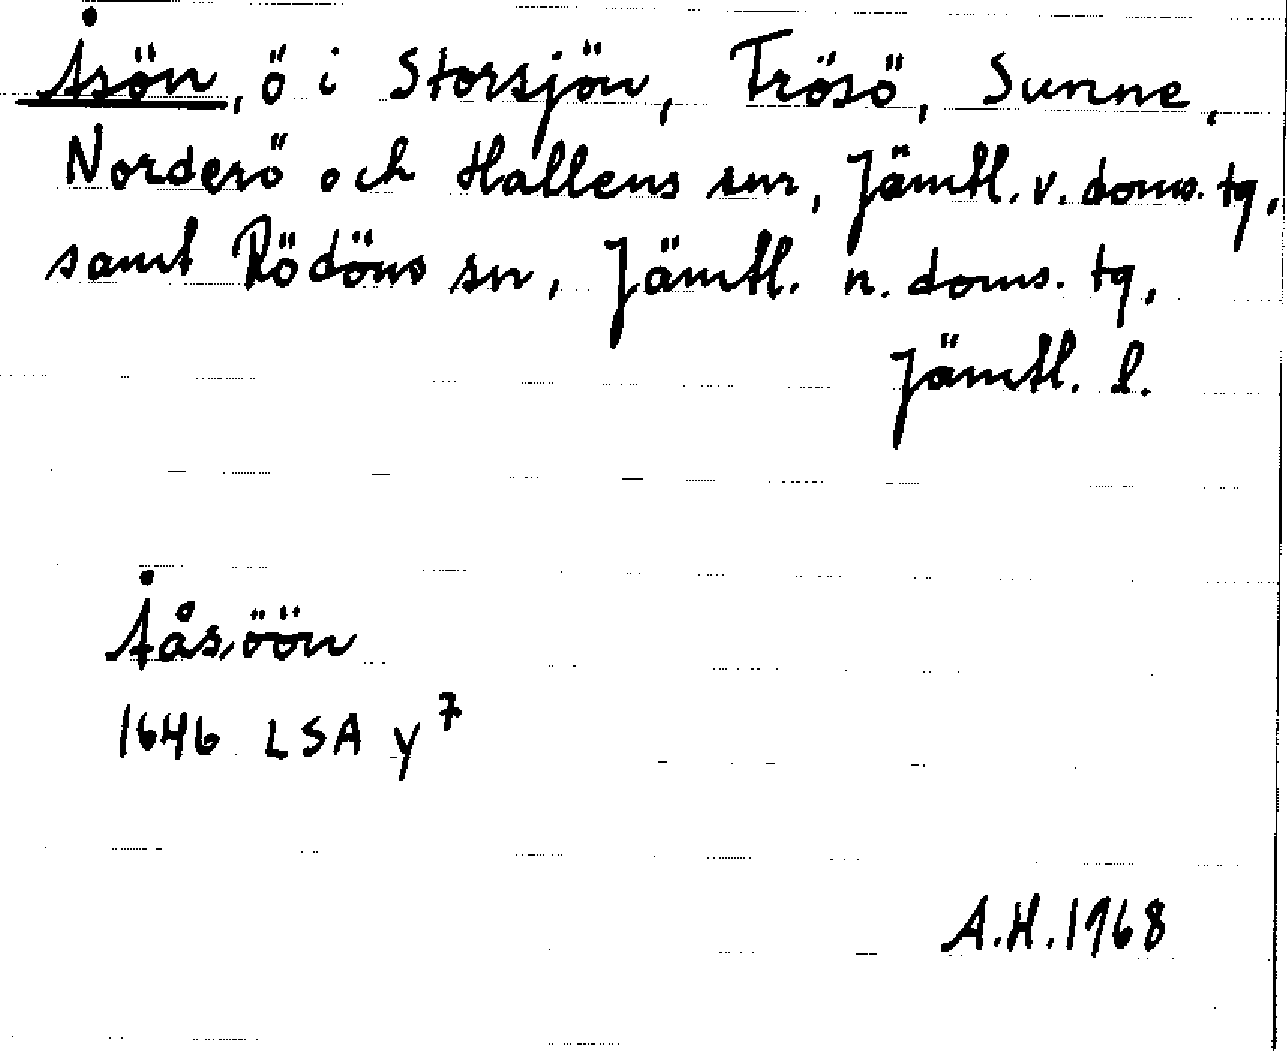 Åsön, ö i Storsjön, Frösö, Sunne,
Norderö och Hallens snr, Jämtl. v. doms. tg,
samt Rödöns sn, Jämtl. n. doms. tg,
Jämtl. l.
Åås,öön
1646 LSA y7
A.H.1968